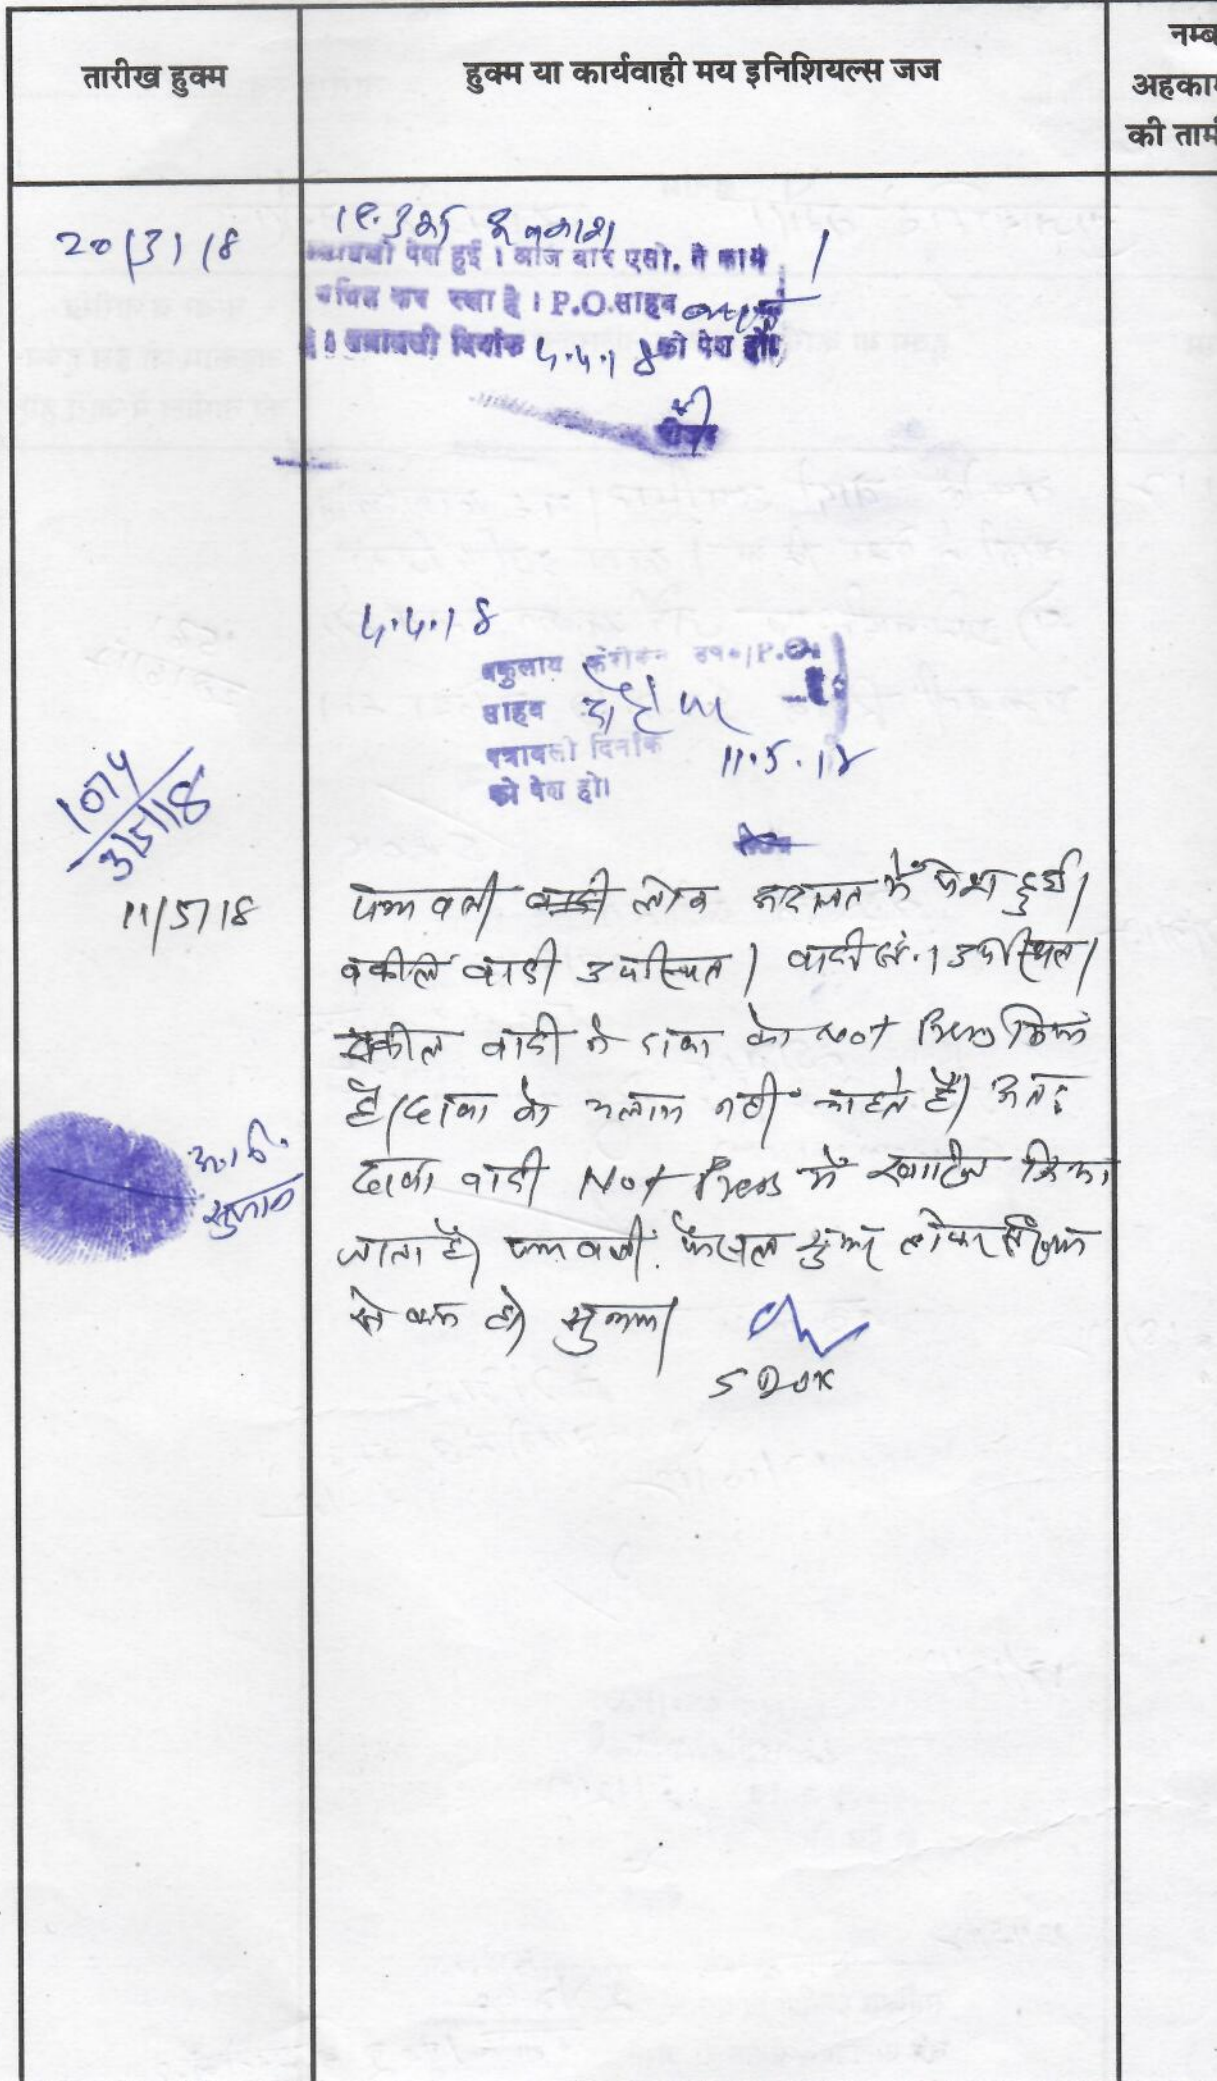 तारीख हुक्म
हुक्म या कार्यवाही मय इनिशियल्स जज
नम्ब
अहका
की ताम
20/3/18
पेश हुई । आज बार एसो. ने कार्य
कर रखा है । P.O. साहब
है । पत्रावली दिनांक 4.4.18 को पेश हो।
रीडर
4.4.18
वकुलाय फरीकेन उप०/P.O.
साहब दौरे पर
पत्रावली दिनांक 11.5.18
को पेश हो।
1074
3/5/18
11/5/18
पत्रावली लोक अदालत में पेश हुई।
वकील वादी उपस्थित। वादी सं.1 उपस्थित।
वकील वादी ने दावा को Not Press किया
है। दावा को चलाना नहीं चाहते है। अतः
दावा वादी Not Press में खारिज किया
जाता है। पत्रावली फैसल शुमार होकर
से कम हो।